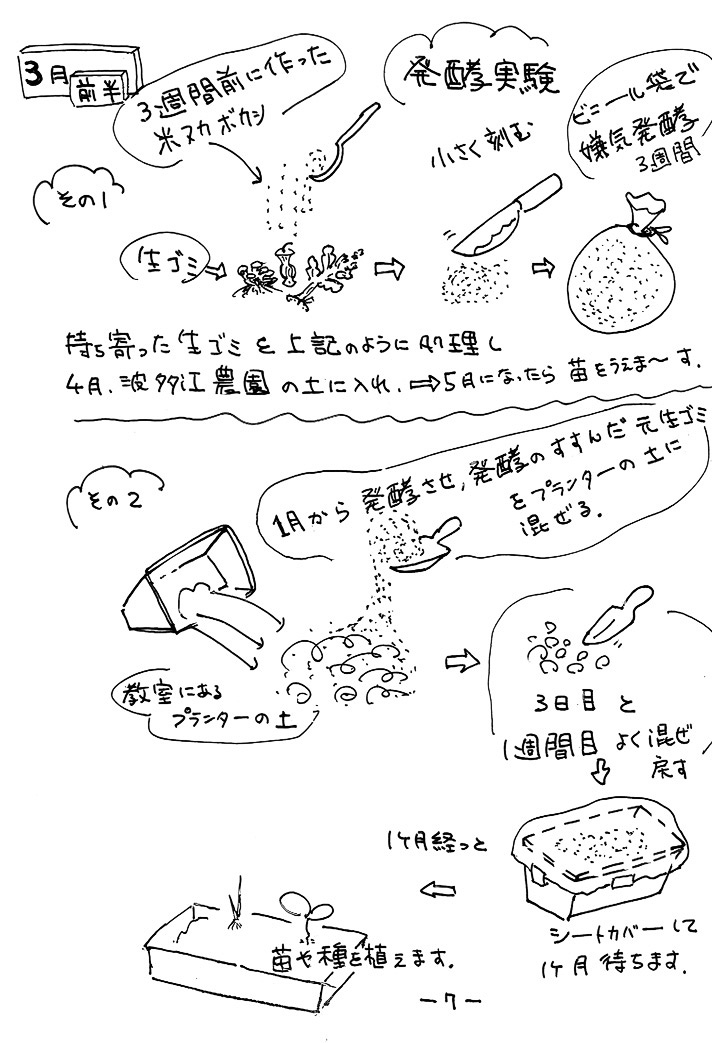 3月
前半
3週間前に作った
米ヌカボカシ
発酵実験
小さく刻む
ビニール袋で
嫌気発酵
3週間
その1
生ゴミ
持ち寄った生ゴミを上記のように処理し
4月、波多江農園の土に入れ、⇨5月になったら苗をうえま〜す.
その2
1月から発酵させ,発酵のすすんだ元生ゴミ
をプランターの土に
混ぜる.
教室にある
プランターの土
3日目と
1週間目よく混ぜ
戻す
シートカバーして
1ヶ月待ちます.
1ヶ月経っと
苗や種を植えます.
-7-